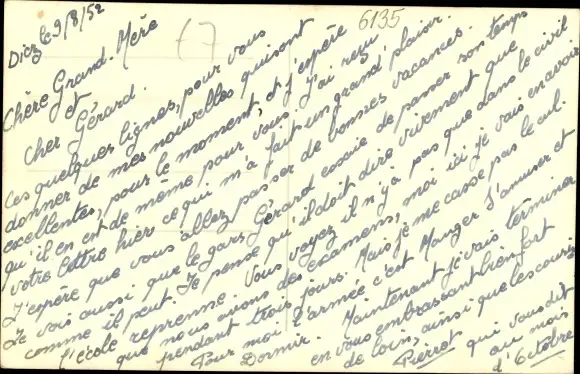 Diez le 9/8/52
6135
Chère Grand-Mère
et
Cher Gérard.
Ces quelques lignes, pour vous
donner de mes nouvelles qui sont
excellentes, pour le moment, et j'espère
qu'il en est de même pour vous. J'ai reçu
votre lettre hier ce qui m'a fait un grand plaisir.
J'espère que vous allez passer de bonnes vacances.
Je vois aussi que le gars Gérard essaie de passer son temps
comme il peut. Je pense qu'il doit dire vivement que
l'école reprenne. Vous voyez il n'y a pas que dans le civil
que nous avons des examens, moi ici je vais en avoir
pendant trois jours. Mais je me casse pas le cul.
Pour moi l'armée c'est Manger S'amuser et
Dormir. Maintenant je vais terminer
en vous embrassant bien fort
de loin, ainsi que les
Pierrot qui vous dit
au mois
d'Octobre